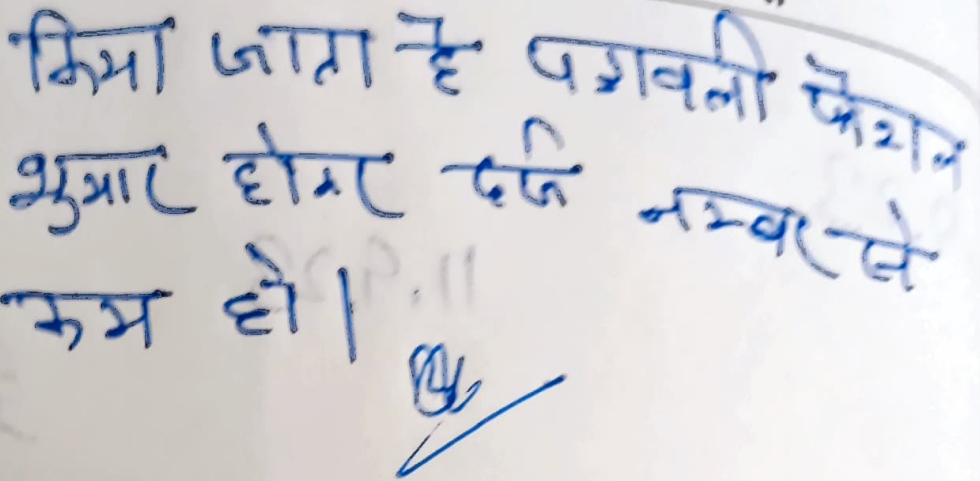 किया जाता है पत्रावली फैशल
शुमार होकर दर्ज नम्बर से
कम हो।